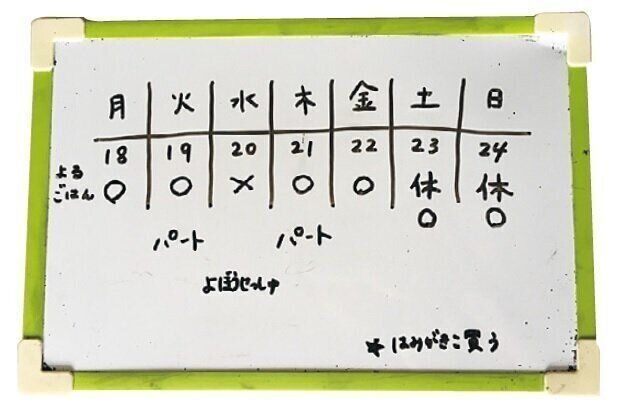 月 火 水 木 金 土 日
18 19 20 21 22 23 24
よる
ごはん ○ ○ × ○ ○ 休 休
○ ○
パート パート
よぼうせっしゅ
* はみがきこ買う